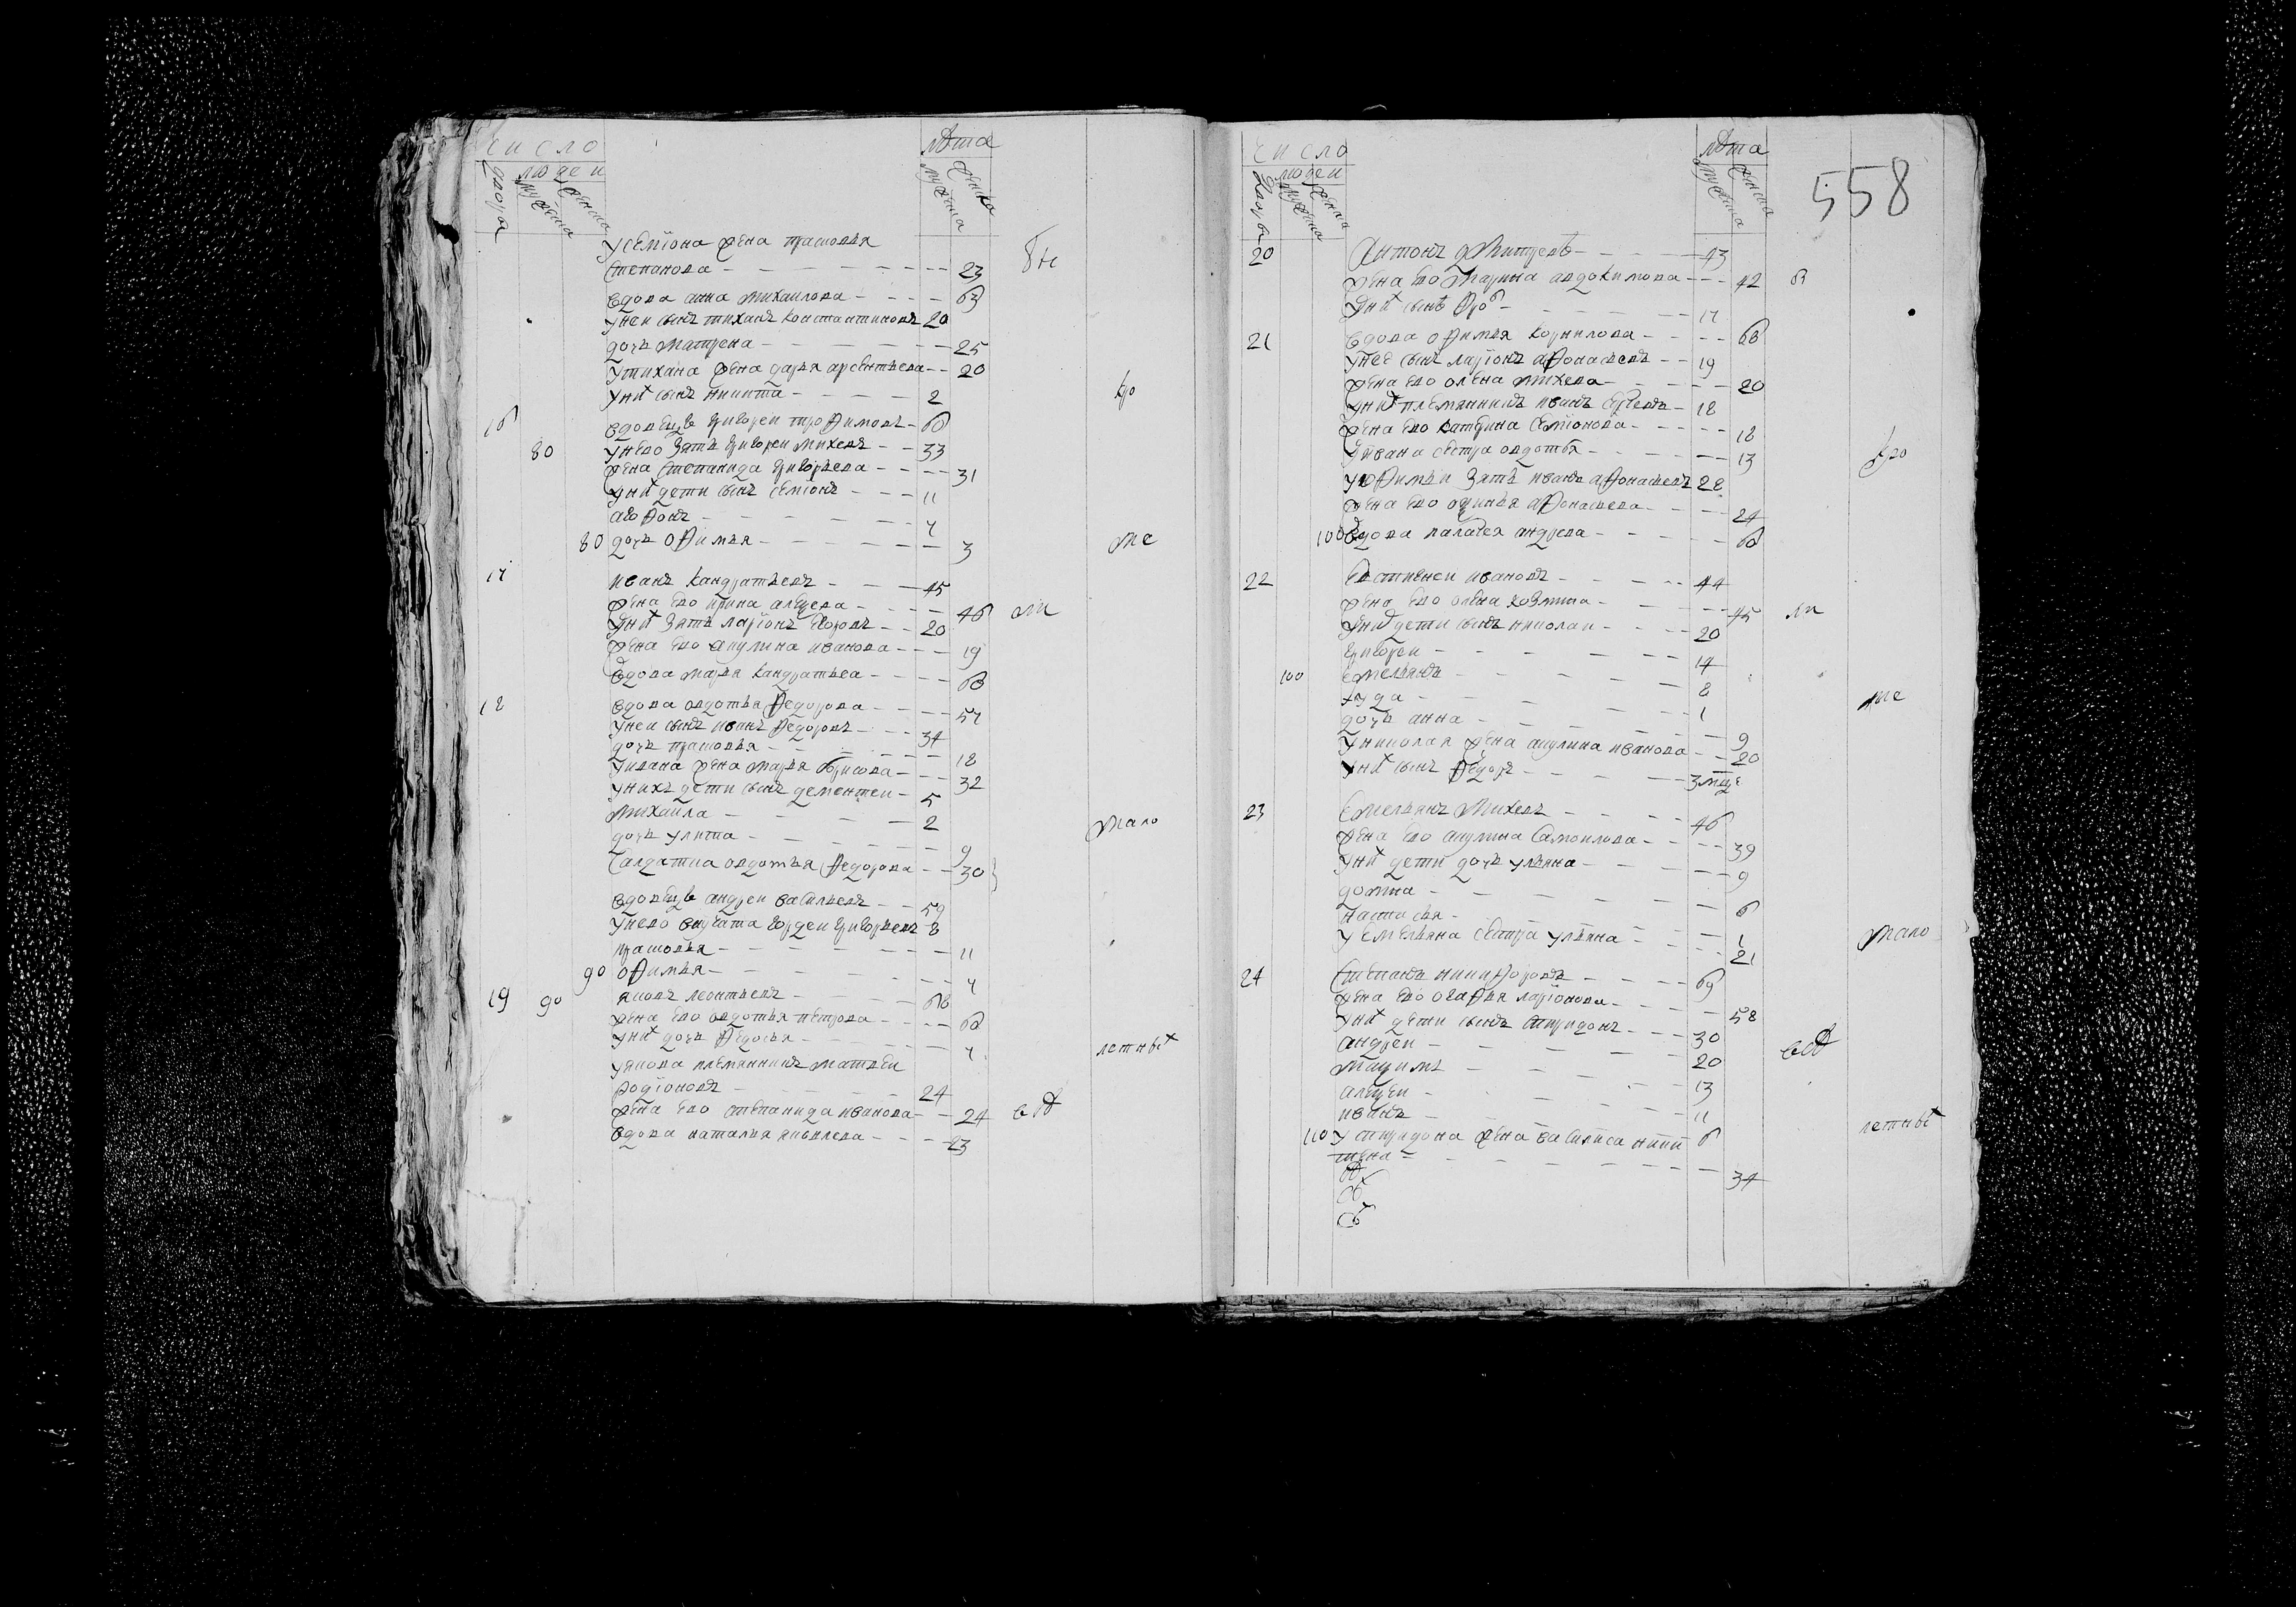 число
людеи
двора
мужеска
женска
лѣта
мужеска
женска
у семïона жена прасковья
степанова 23
бы
вдова анна михаилова 63
у неи сынъ тиханъ костантиновъ 20
дочь матрена 25
у тихана жена дарья арсентьева 20
у них сынъ никита 2
кро
16 вдовецъ григореи трофимовъ 60
80 у него зять григореи михеевъ 33
жена степанида григорьева 31
у них дети сынъ семïонъ 11
агофонъ 4
80 дочь офимья 3
ме
17 иванъ кандратьевъ 45
жена ево ирина алексеева 46
ли
у них зять ларïонъ егоровъ 20
жена ево акулина иванова 19
вдова марья кандратьева 63
18 вдова овдотья федорова 57
у неи сынъ иванъ федоровъ 34
дочь прасковья 18
у ивана жена марья борисова 32
у нихъ дети сынъ дементеи 5
михаила 2
мало
дочь улита 9
салдатка овдотья федорова 30
вдовецъ андреи васильевъ 59
у него внучата гордеи григорьевъ 8
прасковья 11
90 офимья 4
19 90 яковъ леонтьевъ 68
жена ево овдотья петрова 60
у них дочь федосья 4
летных
у якова племянникъ матвеи
родïоновъ 24
жена ево степанида иванова 24
всѣ
вдова наталья яковлева 23
558
число
людеи
двора
мужеска
женска
лѣта
мужеска
женска
20 антонъ дмитреевъ 43
жена ево марина авдокимова 42
в
у них сынъ 17
21 вдова офимья корнилова 68
у нее сынъ ларïонъ афонасьевъ 19
жена ево олена михеева 20
у них племянникъ иванъ сергеевъ 18
жена ево катерина семïонова 18
у ивана сестра овдотья 13
кро
у офимьи зять иванъ афонасьевъ 28
жена ево офимья афонасьева 24
100 вдова палагея андреева 60
22 евстигнеи ивановъ 44
жена ево олена козмина 45
ли
у них дети сынъ николаи 20
григореи 14
100 емельянъ 8
гуда 1
ме
дочь анна 9
у николая жена акулина иванова 20
у них сынъ федоръ 3 мцѣ
23 емельянъ михеевъ 46
жена ево акулина самоилова 39
у них дети дочь ульяна 9
домна 6
настасья 1
у емельяна сестра ульяна 21
мало
24 степанъ никифоровъ 69
жена ево огафья ларïонова 58
у них дети сынъ спиридонъ 30
андреи 20
всѣ
максимъ 13
алексеи 11
иванъ 6
летных
110 у спиридона жена василиса ники
тина 34